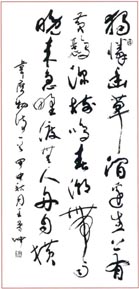 獨憐幽草澗邊生上有
黃鸝深樹鳴春潮帶雨
晚來急野渡無人舟自橫
物詩一首 秋月